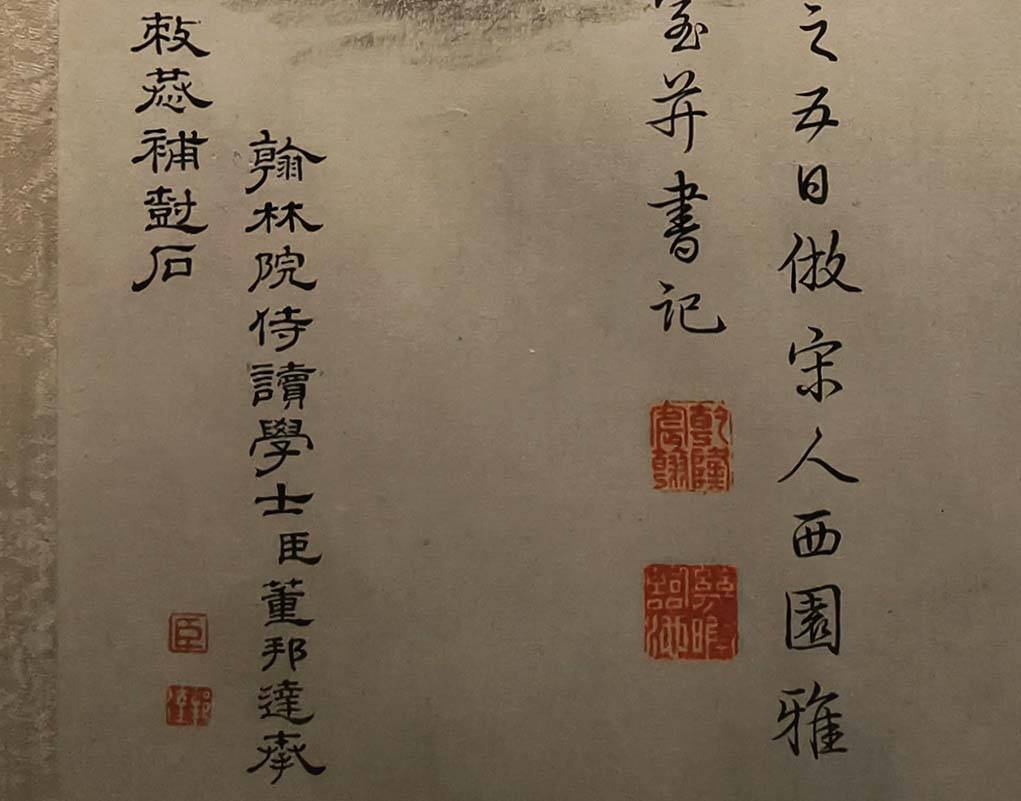 之五日倣宋人西園雅
并書記
乾隆宸翰
幾暇臨池
翰林院侍讀學士臣董邦達承
敕恭補尌石
臣
邦達